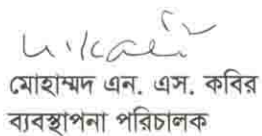 মোহাম্মদ এন. এস. কবির
ব্যবস্থাপনা পরিচালক